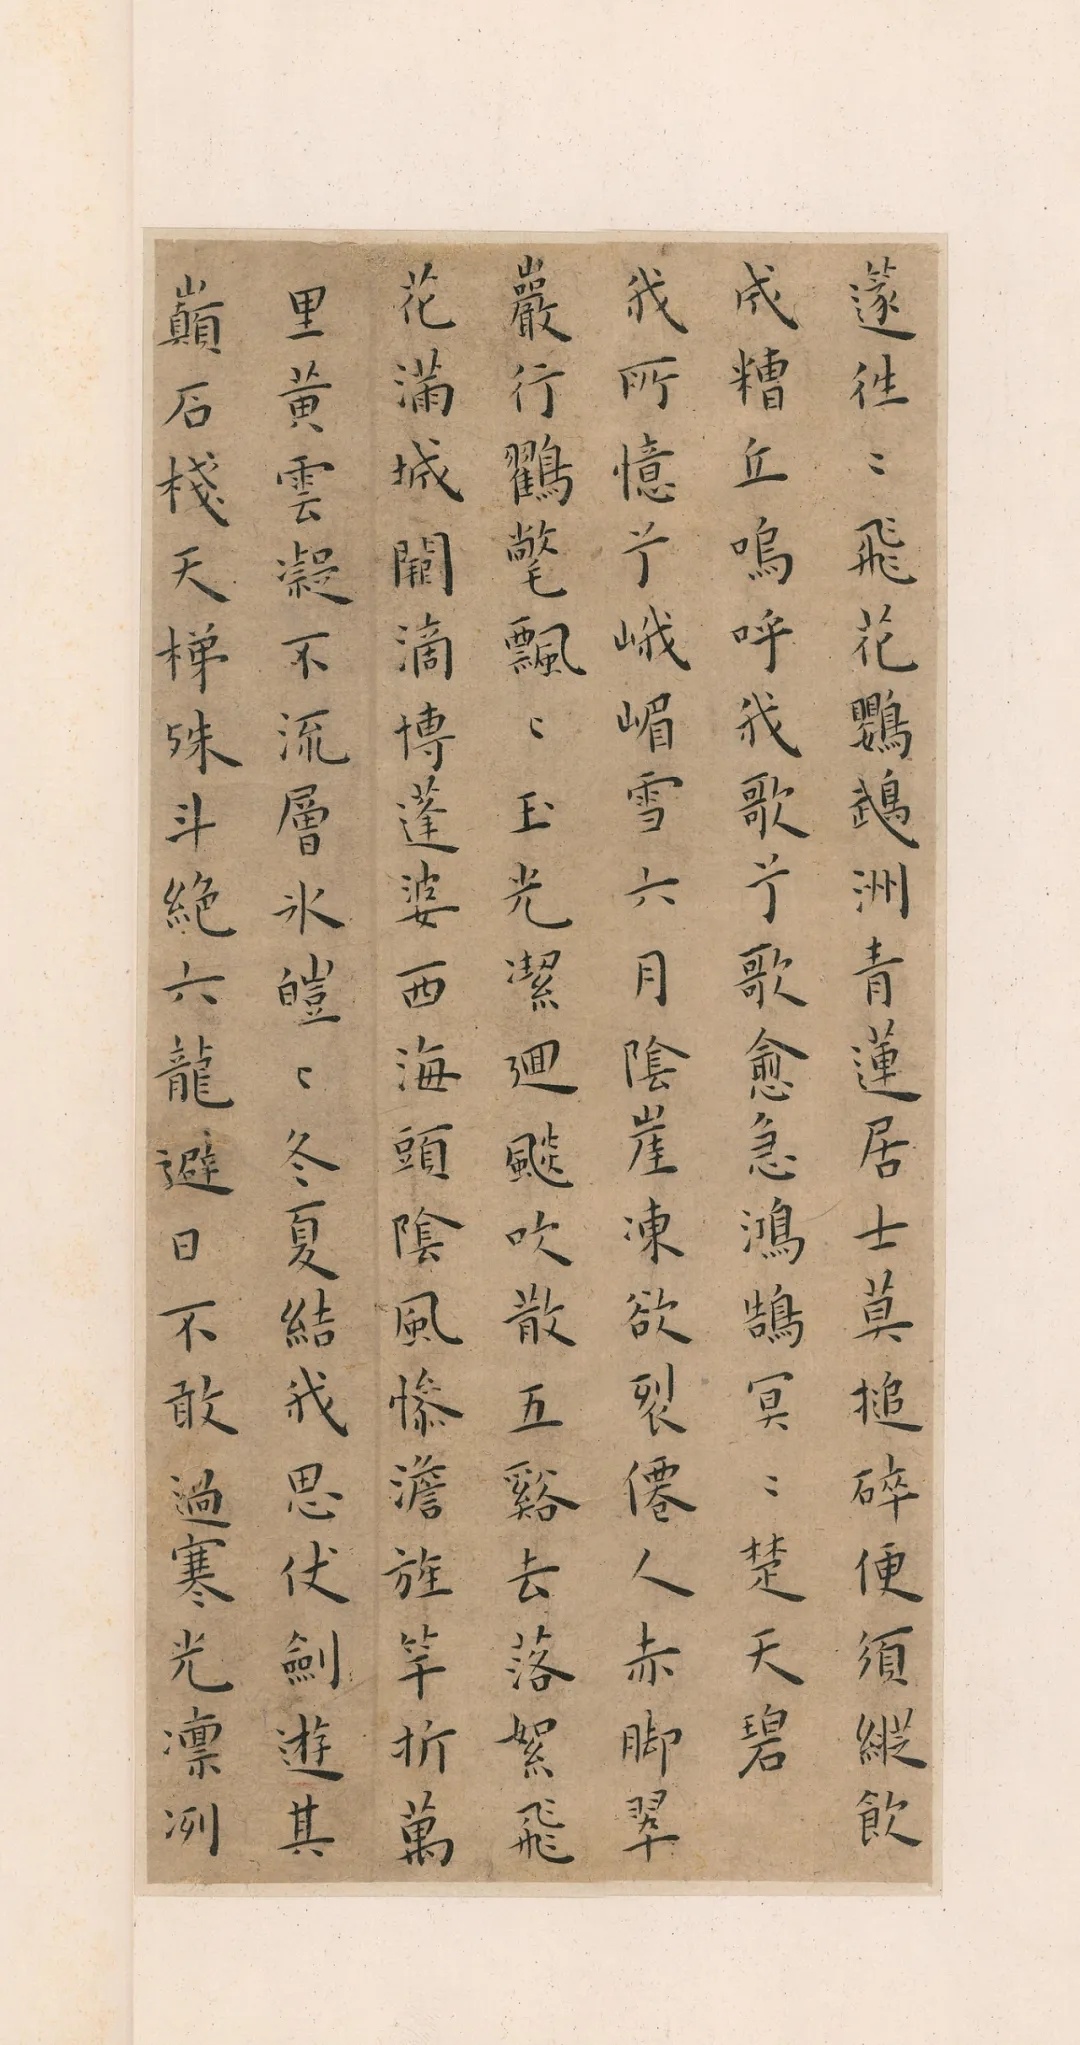 篴徃〻飛花鸚鵡洲青蓮居士莫搥碎便須縱飲
成糟丘嗚呼我歌兮歌愈急鴻鵠冥〻楚天碧
我所憶兮峨嵋雪六月陰崖凍欲裂僊人赤脚翠
巖行鸛氅飄〻玉光潔迴飈吹散五谿去落絮飛
花滿城闕滴博蓬婆西海頭陰風慘澹旌竿折萬
里黃雲凝不流層氷皚〻冬夏結我思伏劍遊其
巔石棧天梯殊斗絕六龍避日不敢過寒光凛冽